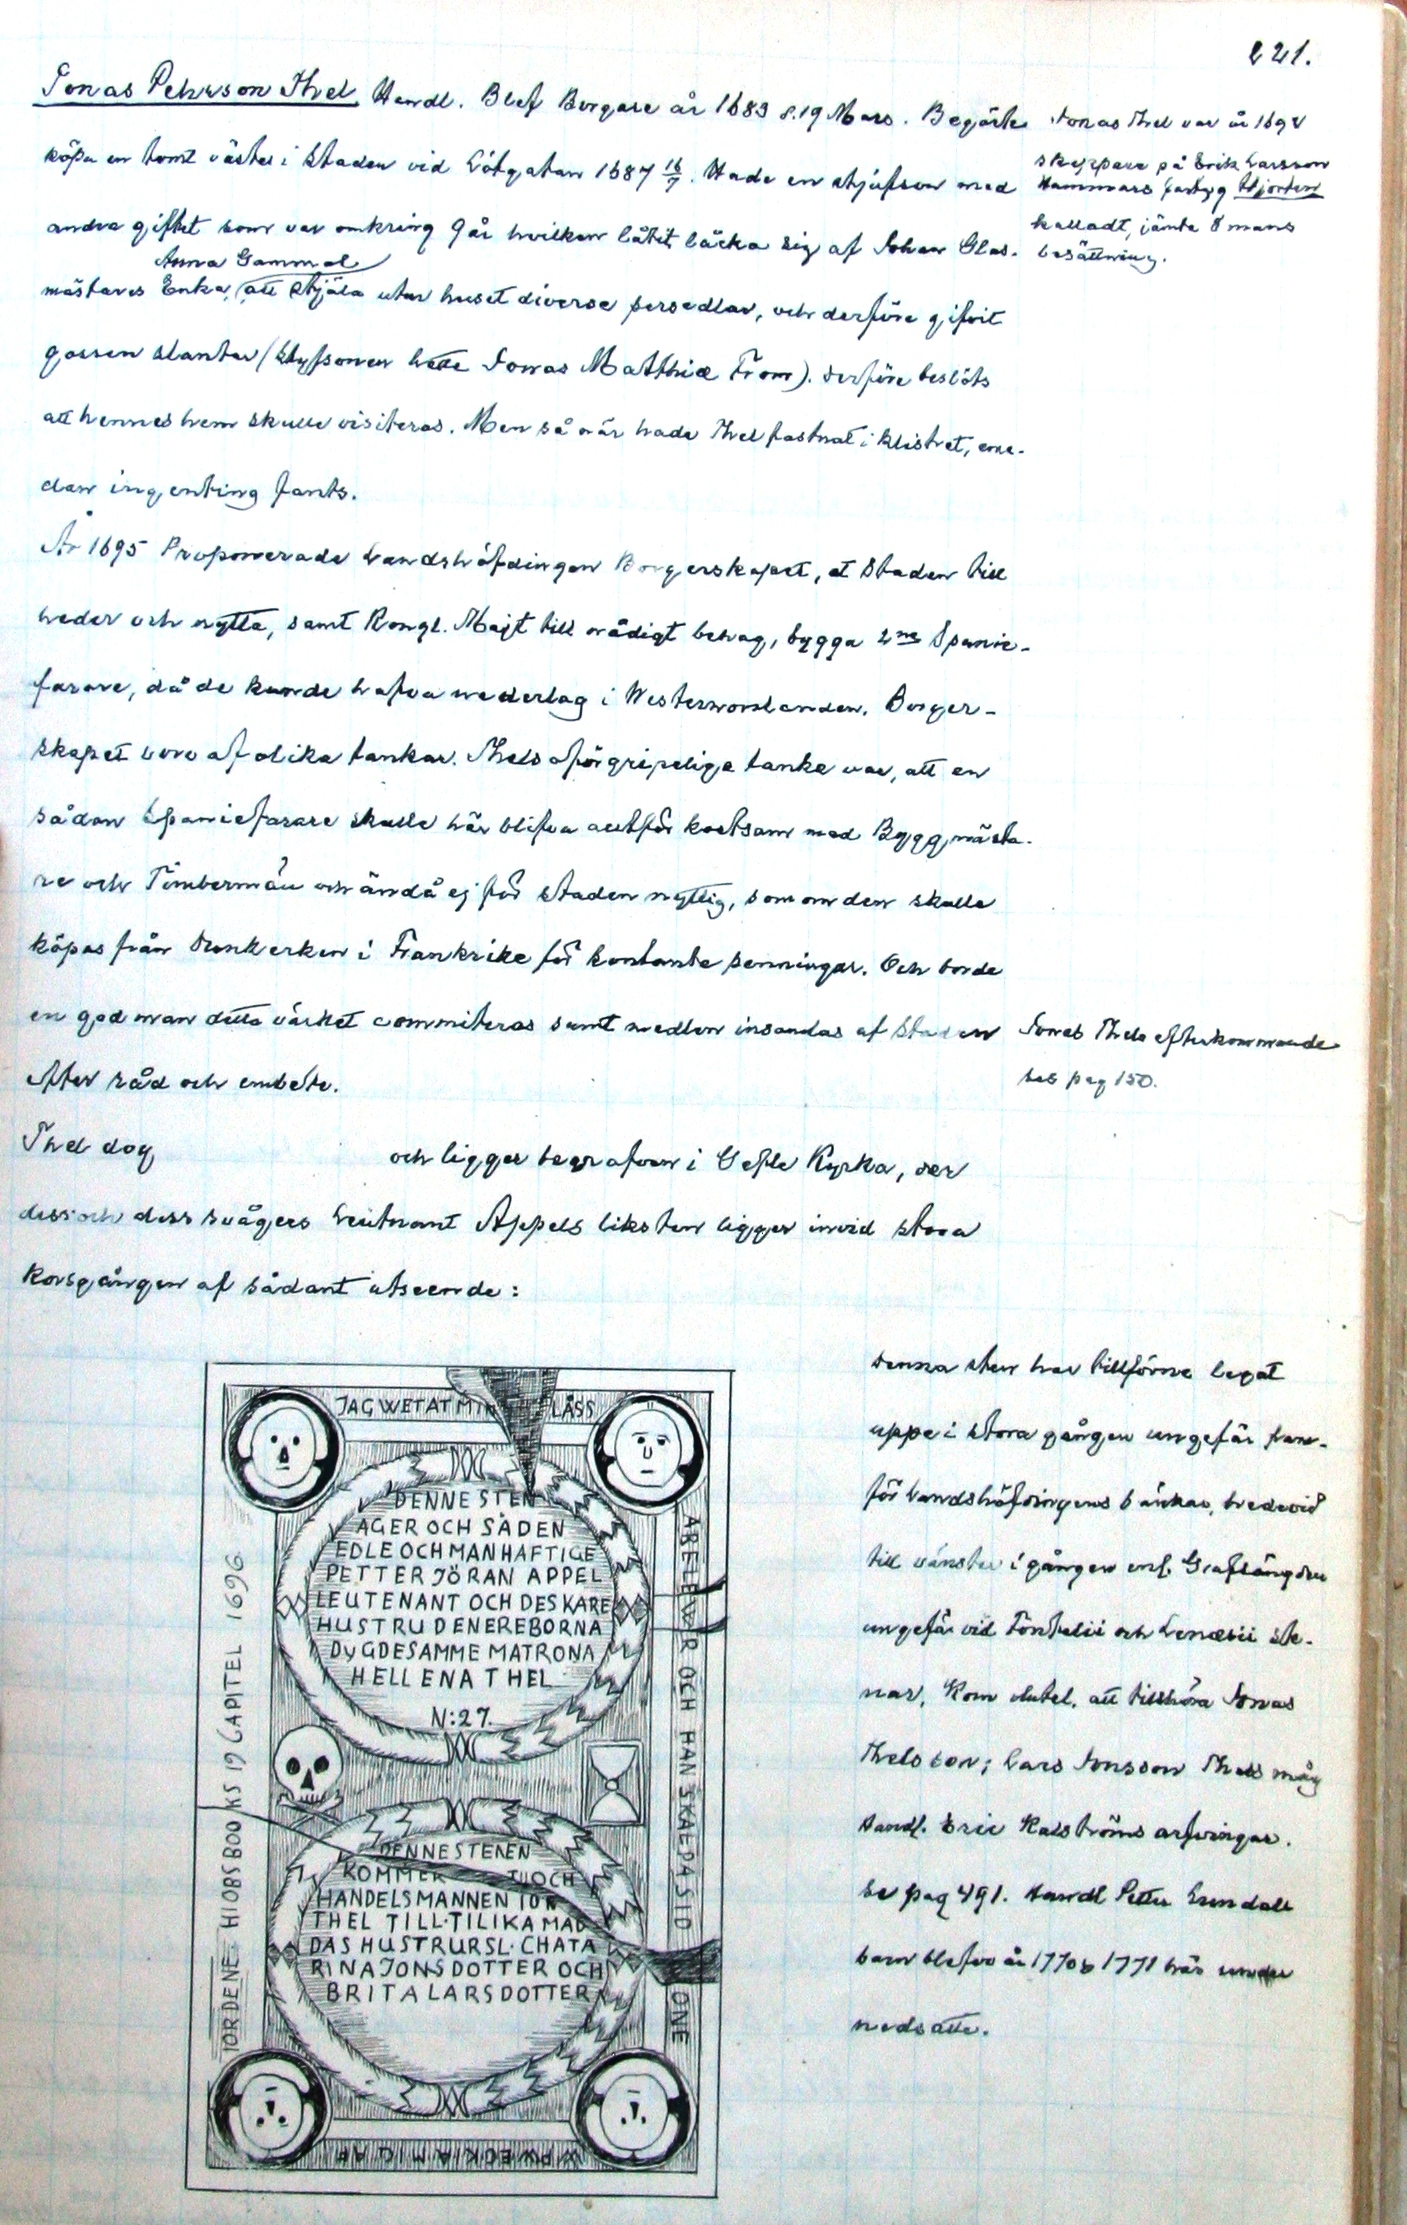 221.
Jonas Pehrson Thel Handl. Blef Borgare år 1683 d. 19 Mars. Begärte
köpa en tomt väster i Staden vid Lötgatan 1687 16/7. Hade en styfson med
andra giftet som var omkring 9 år hvilken låtit läcka sig af Johan Glas-
mästares Enka, Anna Gammal att stjäla utur huset diverse persedlar, och derföre gifvit
gossen slantar (Styfsonen hette Jonas Matthiæ From). Derföre beslöts
att hennes hem skulle visiteras. Men så när hade Thel fastnat i klistret, eme-
dan ingenting fants.
År 1695 Proponerade Landshöfdingen Borgerskapet, at Staden till
heder och nytta, samt Kongl. Majt till nådigt behag, bygga 2ne Spanie-
farare, då de kunde hafva nederlag i Westernorrlanden. Borger-
skapet voro af olika tankar. Thels oförgripeliga tanke var, att en
sådan Spaniefarare skulle här blifva alltför kostsam med Byggmästa-
re och Timbermän och ändå ej för staden nyttig, som om den skulle
köpas från Dunkerken i Frankrike för kontanta penningar. Och borde
en god man detta värket commiteras samt medlen insandas af Staden
efter råd och embete.
Thel dog och ligger begrafven i Gefle Kyrka, der
dess och dess svågers Leutnant Appels liksten ligger invid stora
Korsgången af sådant utseende:
Jonas Thel var år 1692
skeppare på Erik Larsson
Hammars fartyg Hjorten
kalladt, jämte 8 mans
besättning.
Jonas Thels efterkommande
ses pag 150.
JAG WET AT MIN LÅSS
DENNE STEN
ÄGER OCH SÅDEN
EDLE OCH MANHAFTIGE
PETTER JÖRAN APPEL
LEUTENANT OCH DES KÄRE
HUSTRU DEN EREBORNA
DyGDESAMME MATRONA
HELLENA THEL
N:27.
DENNE STENEN
KOMMER OCH
HANDELSMANNEN ION
THEL TILL·TILIKA MÄD
DAS HUSTRUR SL·CHATA
RINA JONSDOTTER OCH
BRITA LARSDOTTER
ARE LEWER OCH HAN SKAL PÅ SID ONE
WPWECKIA MIG AF
IORDENE HIOBS BOOKS 19 CAPITEL 1696
Denna sten har tillförne legat
uppe i stora gången ungefär fram-
för Landshöfdingens bänkar, bredevid
till vänster i gången enl. Graflängden
ungefär vid och Lenæsii ste-
nar. Kom slutel. att tillhöra Jonas
Thels son; Lars Jonsson Thels måg
Handl. Eric Kalströms arfvingar.
Se pag 491. Handl Petter Lundals
barn blefvo år 1770 & 1771 här under
nedsatte.